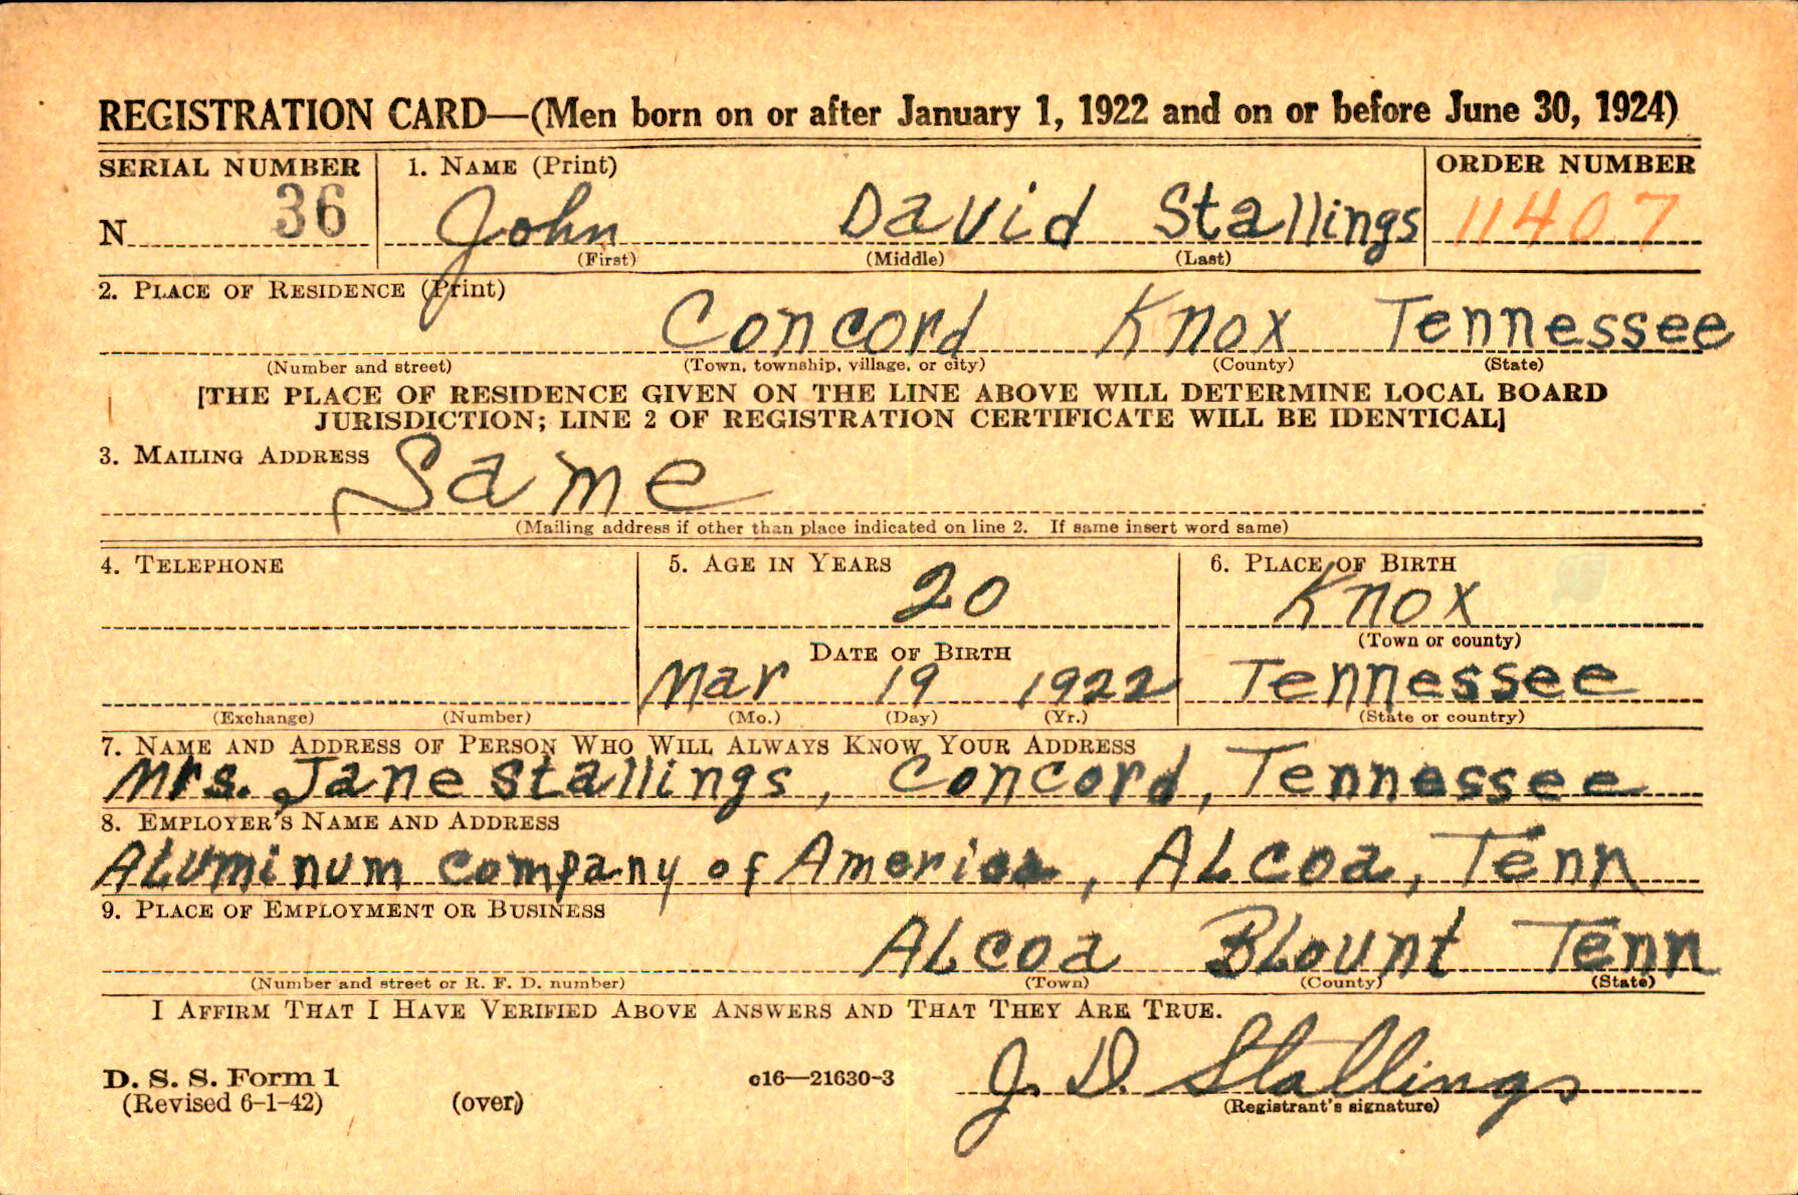 REGISTRATION CARD—(Men born on or after January 1, 1922 and on or before June 30, 1924)
SERIAL NUMBER 1. NAME (Print) ORDER NUMBER
N 36 John David Stallings 11407
(First) (Middle) (Last)
2. PLACE OF RESIDENCE (Print)
Concord Knox Tennessee
(Number and street) (Town, township, village, or city) (County) (State)
[THE PLACE OF RESIDENCE GIVEN ON THE LINE ABOVE WILL DETERMINE LOCAL BOARD
JURISDICTION; LINE 2 OF REGISTRATION CERTIFICATE WILL BE IDENTICAL]
3. MAILING ADDRESS
Same
(Mailing address if other than place indicated on line 2. If same insert word same)
4. TELEPHONE 5. AGE IN YEARS 6. PLACE OF BIRTH
20 Knox
(Town or county)
DATE OF BIRTH
Mar 19 1922 Tennessee
(Exchange) (Number) (Mo.) (Day) (Yr.) (State or country)
7. NAME AND ADDRESS OF PERSON WHO WILL ALWAYS KNOW YOUR ADDRESS
Mrs. Jane Stallings, Concord, Tennessee
8. EMPLOYER'S NAME AND ADDRESS
ALuminum Company of America, ALcoa, Tenn
9. PLACE OF EMPLOYMENT OR BUSINESS
ALcoa BLount Tenn
(Number and street or R. F. D. number) (Town) (County) (State)
I AFFIRM THAT I HAVE VERIFIED ABOVE ANSWERS AND THAT THEY ARE TRUE.
D. S. S. Form 1
(Revised 6-1-42) (over) c16—21630-3 J. D. Stallings
(Registrant's signature)